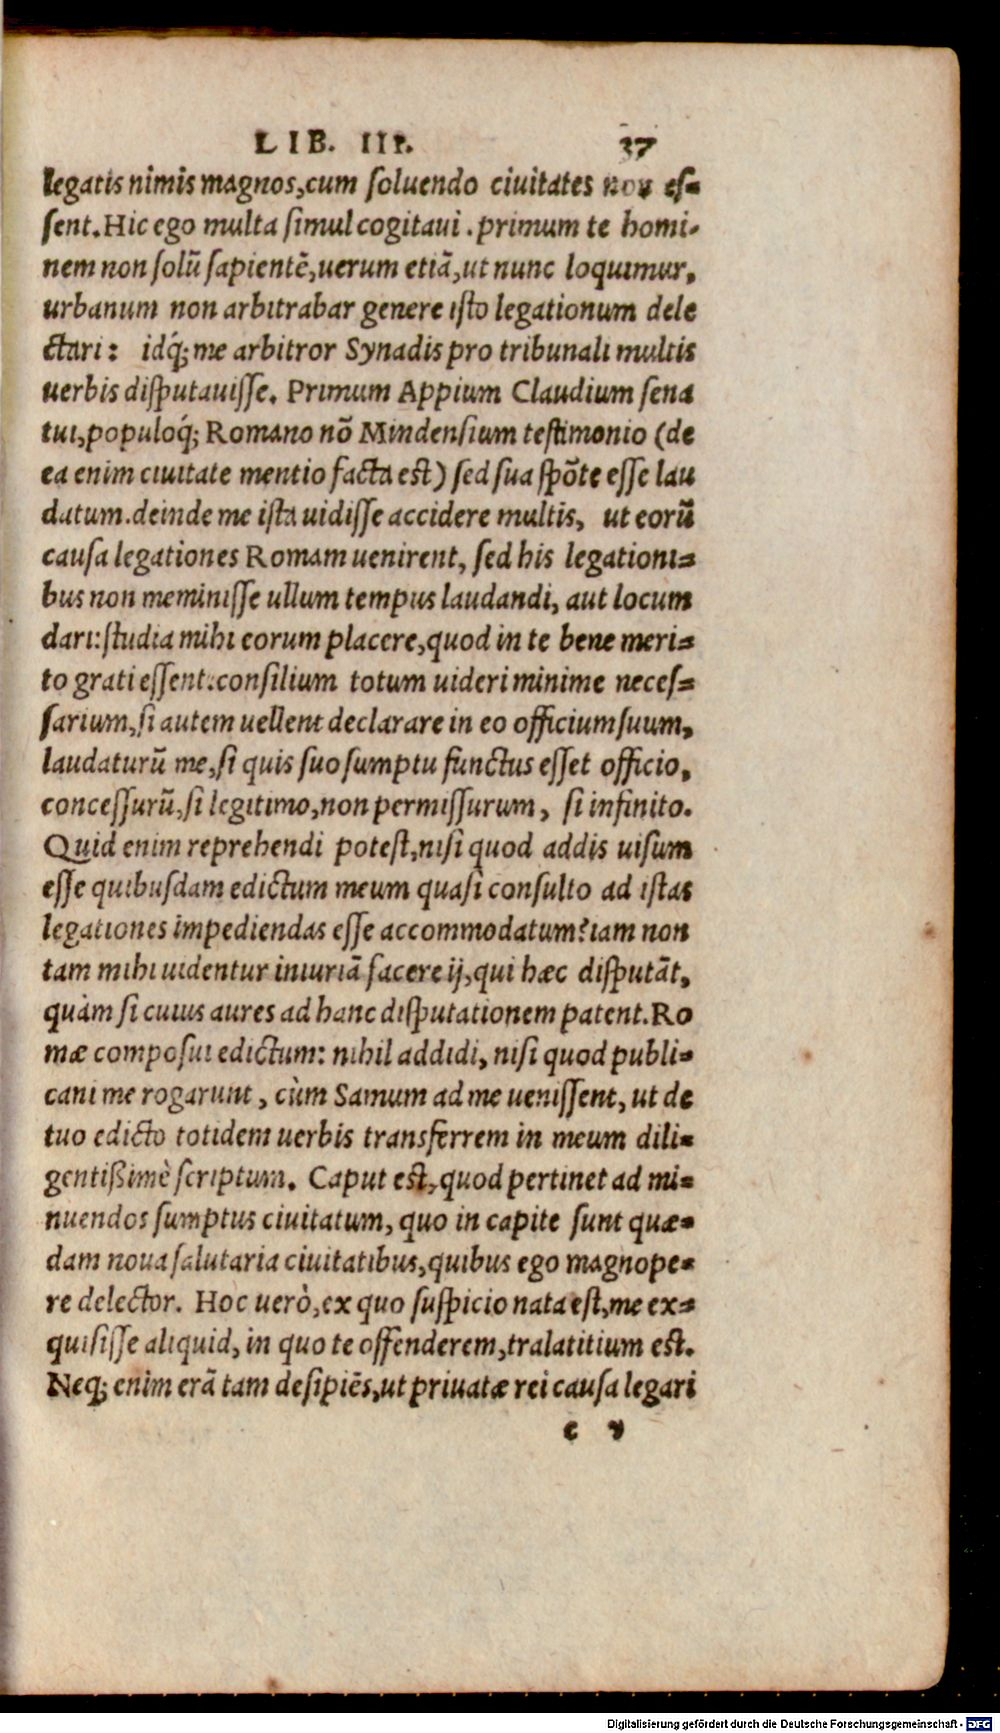 LIB. III. 37
legatis nimis magnos, cum soluendo ciuitates non es-
sent. Hic ego multa simul cogitaui. primum te homi-
nem non solũ sapientẽ, uerum etiã, ut nunc loquimur,
urbanum non arbitrabar genere isto legationum dele
ctari: idq́; me arbitror Synadis pro tribunali multis
uerbis disputauisse. Primum Appium Claudium sena
tui, populoq́; Romano nõ Mindensium testimonio (de
ea enim ciuitate mentio facta est) sed sua spõte esse lau
datum. deinde me ista uidisse accidere multis, ut eorũ
causa legationes Romam uenirent, sed his legationi-
bus non meminisse ullum tempus laudandi, aut locum
dari: studia mihi eorum placere, quod in te bene meri-
to grati essent: consilium totum uideri minime neces-
sarium, si autem uellent declarare in eo officium suum,
laudaturũ me, si quis suo sumptu functus esset officio,
concessurũ, si legitimo, non permissurum, si infinito.
Quid enim reprehendi potest, nisi quod addis uisum
esse quibusdam edictum meum quasi consulto ad istas
legationes impediendas esse accommodatum? iam non
tam mihi uidentur iniuriã facere ij, qui hæc disputãt,
quàm si cuius aures ad hanc disputationem patent. Ro
mæ composui edictum: nihil addidi, nisi quod publi-
cani me rogarunt, cùm Samum ad me uenissent, ut de
tuo edicto totidem uerbis transferrem in meum dili-
gentißimè scriptum. Caput est, quod pertinet ad mi-
nuendos sumptus ciuitatum, quo in capite sunt quæ-
dam noua salutaria ciuitatibus, quibus ego magnope-
re delector. Hoc uerò, ex quo suspicio nata est, me ex-
quisisse aliquid, in quo te offenderem, tralatitium est.
Neq; enim erã tam desipiẽs, ut priuatæ rei causa legari
c v
Digitalisierung gefördert durch die Deutsche Forschungsgemeinschaft - DFG